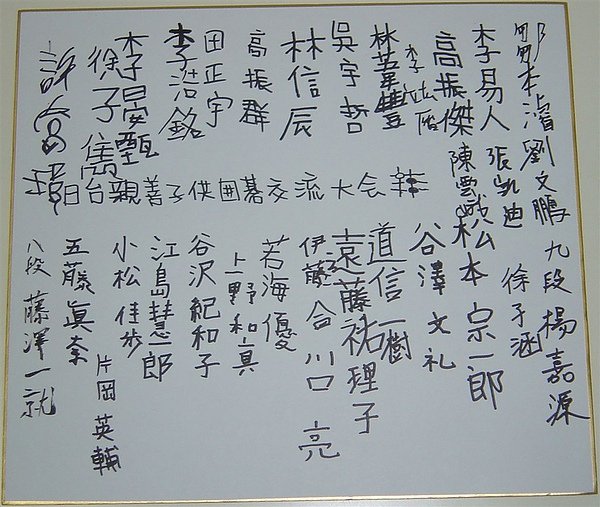 劉文鵬 九段
楊嘉源
李易人
張凱迪
徐子涵
高振傑
陳雲
松本宗一郎
谷澤文礼
吳宇哲
道信一樹
遠藤祐理子
林信辰
伊藤合
川口亮
高振群
若海優
上野和真
田正宇
谷沢紀和子
李浩銘
江島慧一郎
小松佳歩
片岡英輔
徐子雋
五藤眞奈
八段 藤澤一就
日台親善子供囲碁交流大会